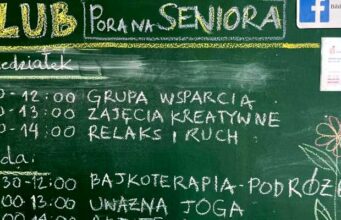 LUB PORA NA SENIORA
edziałek
0-12:00 GRUPA WSPARCIA
0-13:00 ZAJĘCIA KREATYWNE
0-14:00 RELAKS I RUCH
da:
30-12:00 BAJKOTERAPIA-PODRÓŻE
00-13:00 UWAŻNA JOGA